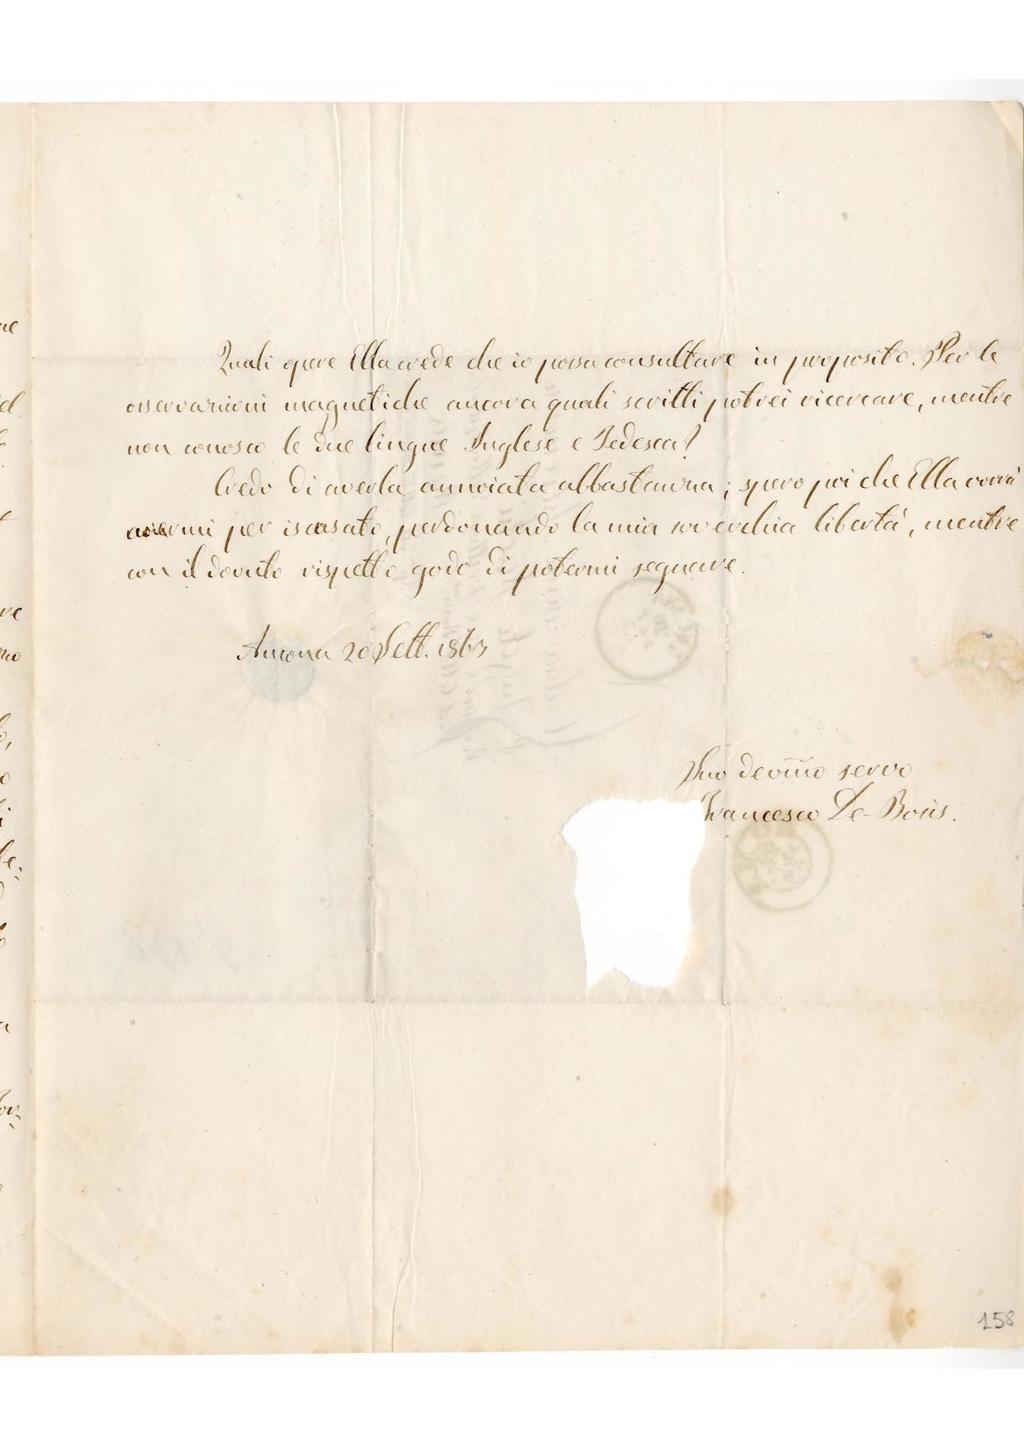 Quali opere Ella crede che io possa consultare in proposito. Per le
osservazioni magnetiche ancora quali scritti potrei ricercare, mentre
non conosco le due lingue Inglese e Tedesca?
Credo di averla annoiata abbastanza; spero poi che Ella vorrà
avermi per iscusato, perdonando la mia soverchia libertà, mentre
con il dovuto rispetto godo di potermi segnare.
Ancona 20 Sett. 1863
Suo devmo servo
Francesco De-Bosis.
158